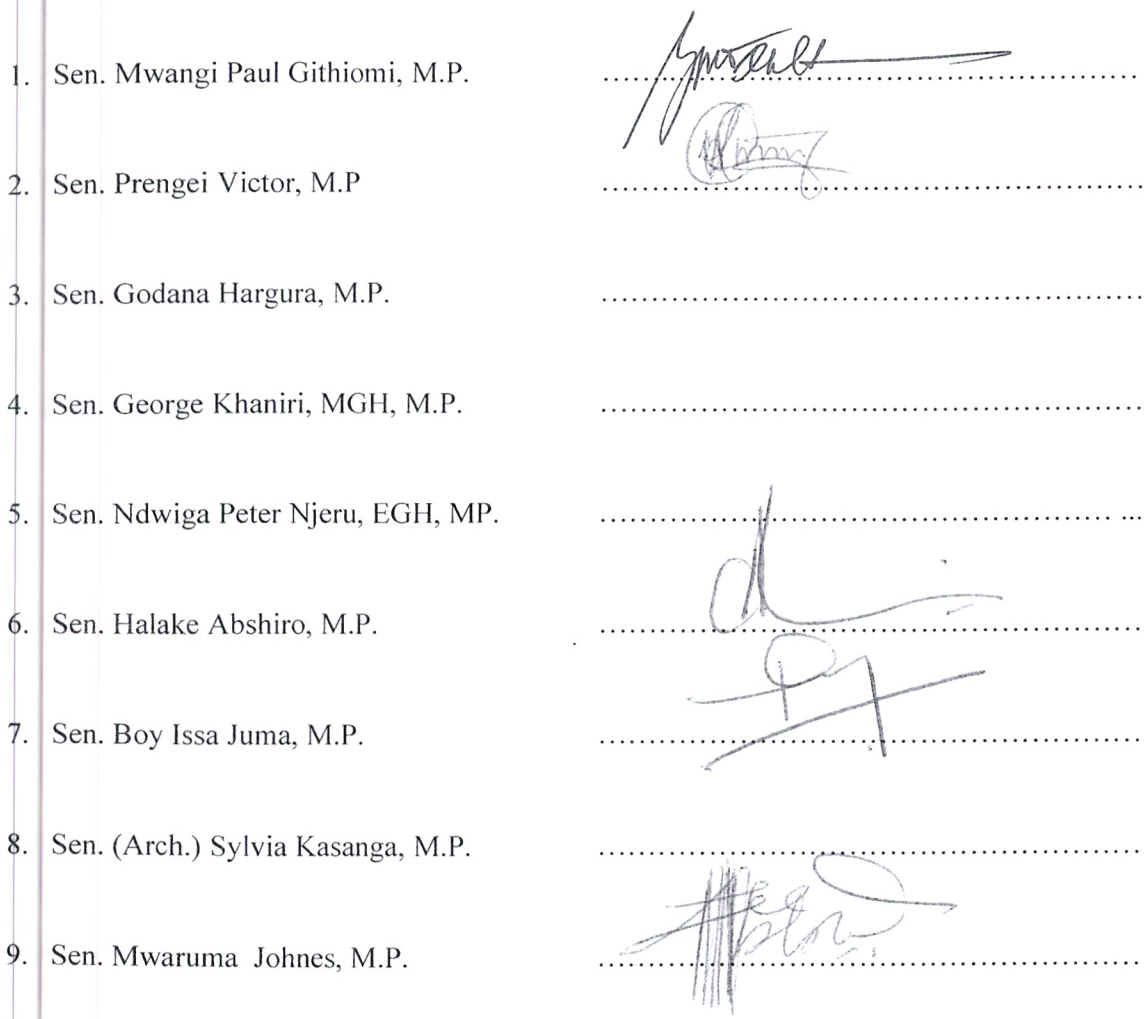 1. Sen. Mwangi Paul Githiomi, M.P. ......................................................
2. Sen. Prengei Victor, M.P ......................................................
3. Sen. Godana Hargura, M.P. ......................................................
4. Sen. George Khaniri, MGH, M.P. ......................................................
5. Sen. Ndwiga Peter Njeru, EGH, MP. ...................................................... ...
6. Sen. Halake Abshiro, M.P. ......................................................
7. Sen. Boy Issa Juma, M.P. ......................................................
8. Sen. (Arch.) Sylvia Kasanga, M.P. ......................................................
9. Sen. Mwaruma Johnes, M.P. ......................................................